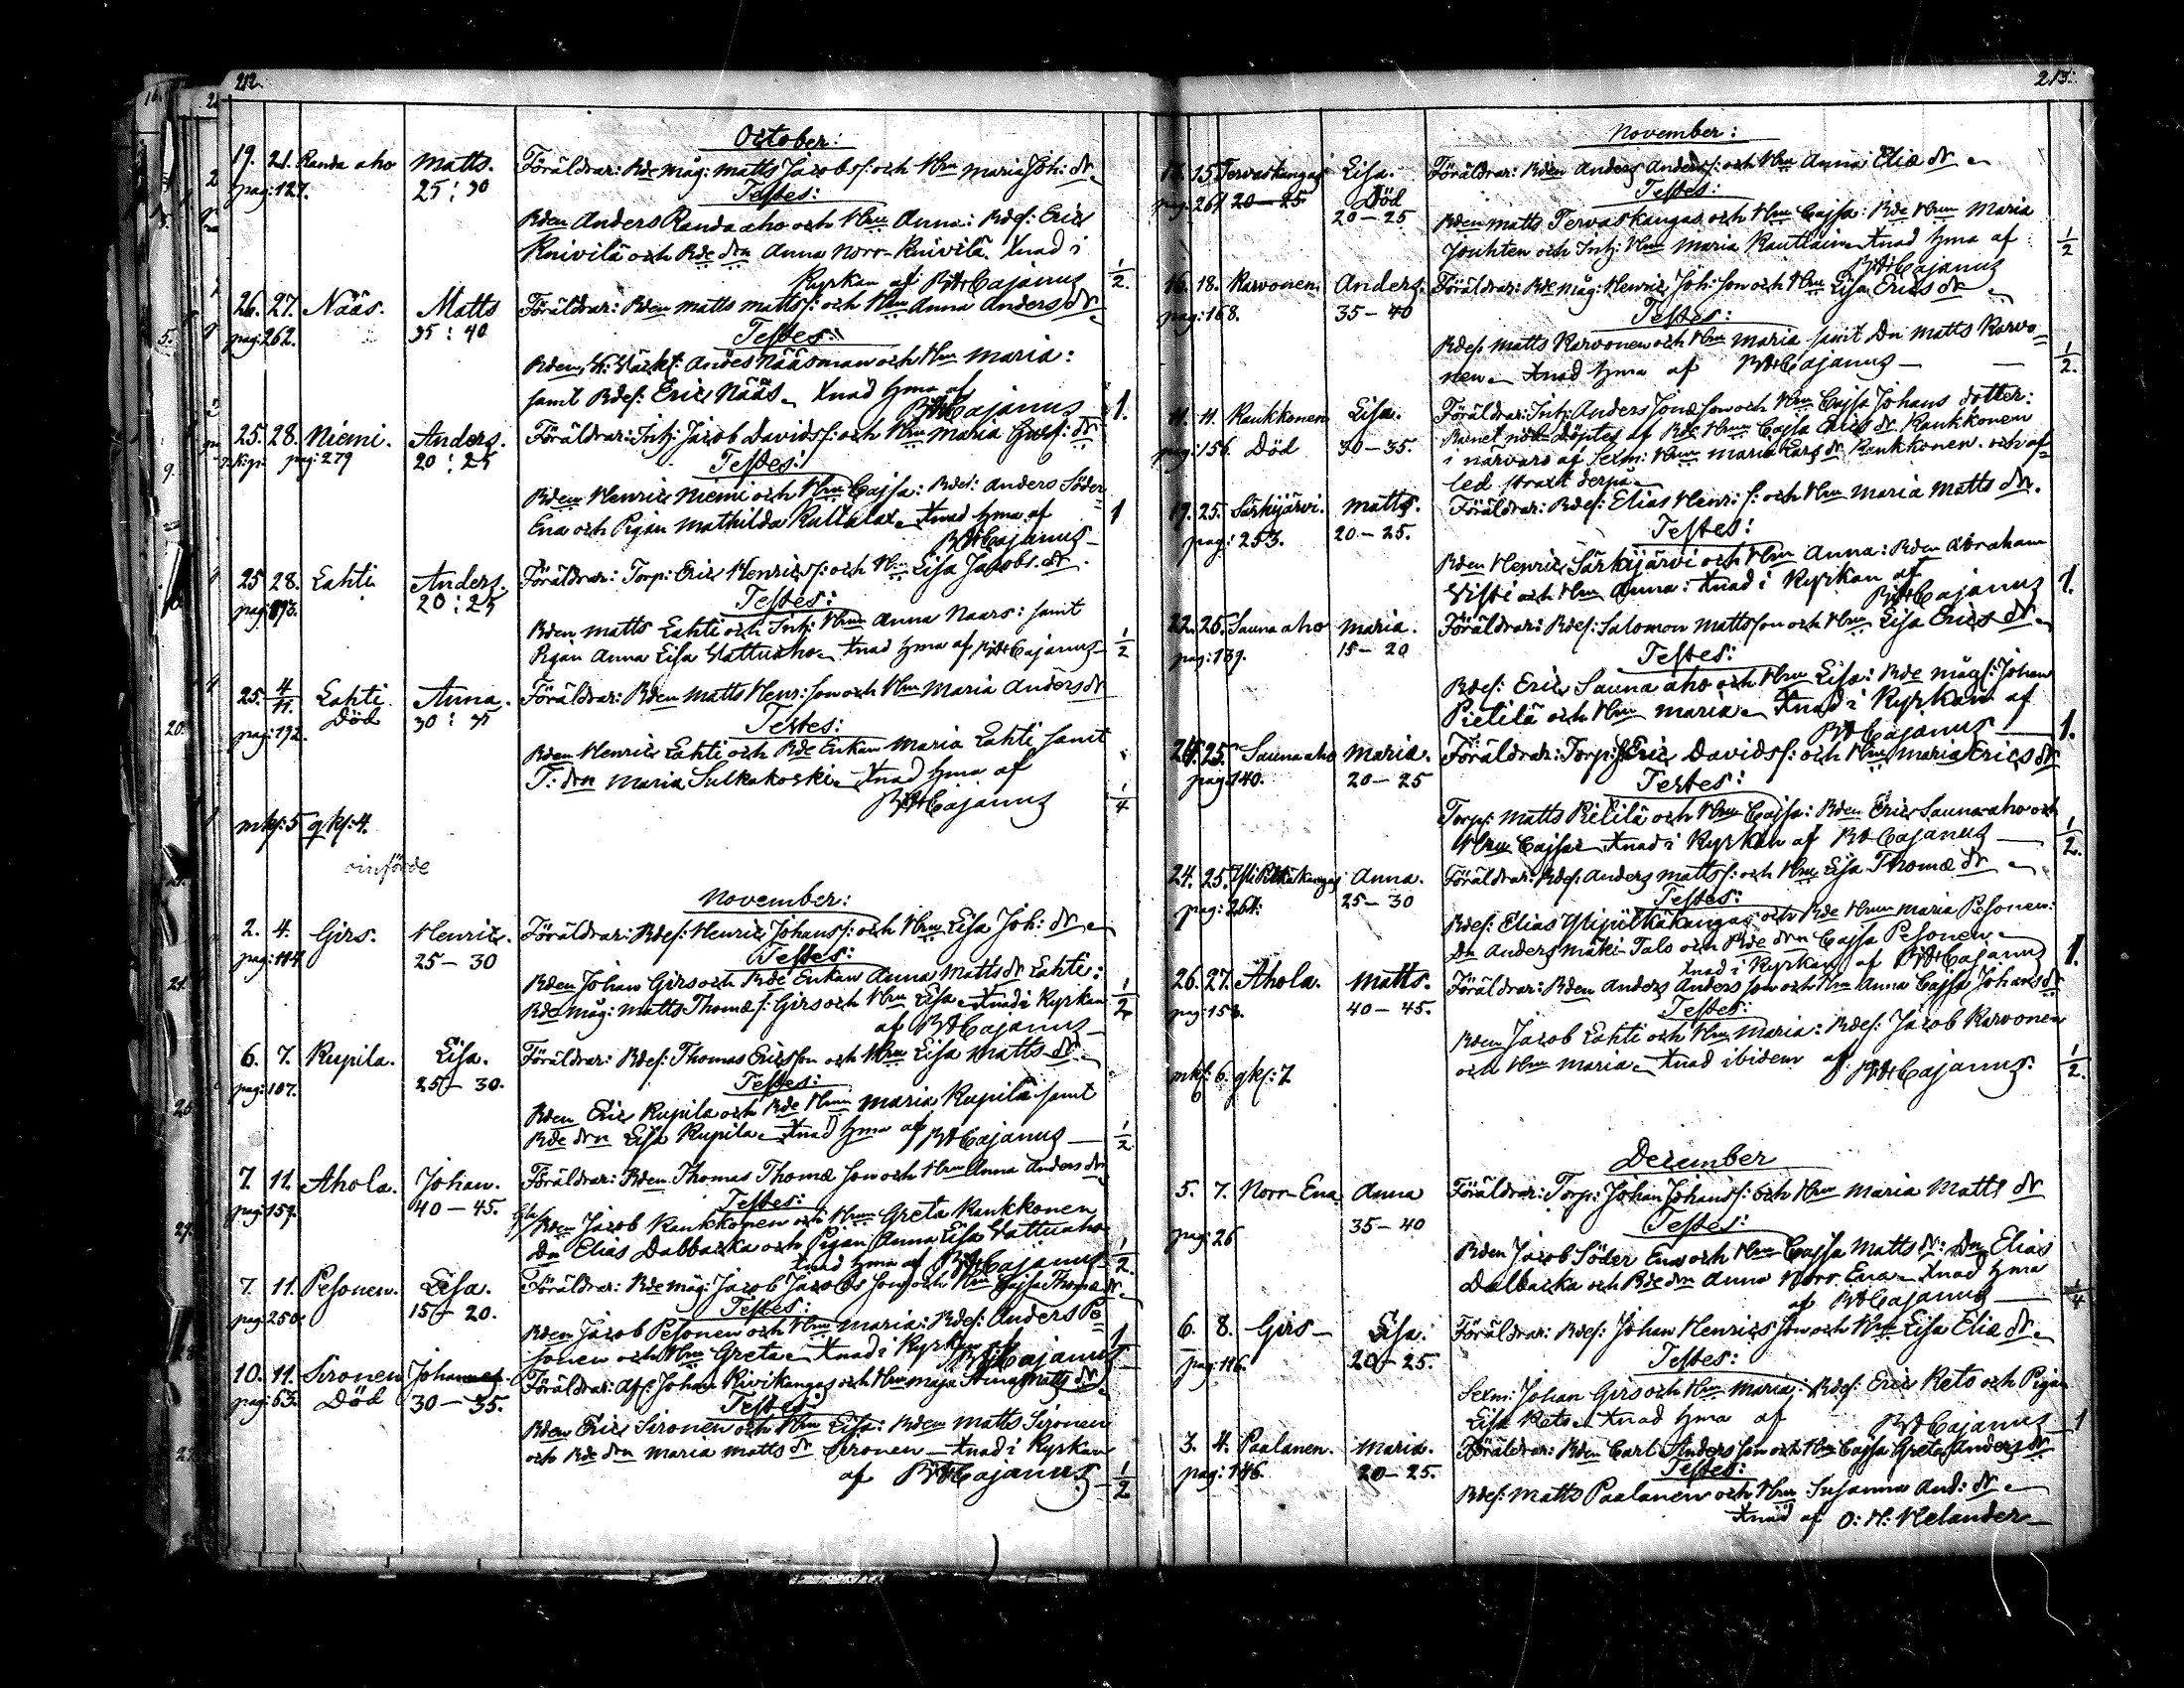 212.
October:
19. 21. Randa aho Matts. Föräldrar: Bde Måg: Matts Jacobs s: och Hru Maria Joh: dr
pag: 127. 25:30 Testes:
Bden Anders Randa aho och Hru Anna: Bdes: Eric
Knivilä och Bde drn Anna Norr-Knivilä. Xnad i
Kyrkan af B A Cajanus 1/2.
26. 27. Nääs. Matts Föräldrar: Bden Matts Matts s: och Hru Anna Anders dr
pag: 262. 35:40 Testes:
Bden, Anders Nääsman och Hru Maria:
samt Bdes: Eric Nääs. Xnad hma af
B A Cajanus 1.
25. 28. Niemi. Anders. Föräldrar: Inh: Jacob Davids s: och Hru Maria Gust: dr
pag: 279 20:25 Testes:
Bden Henric Niemi och Hru Cajsa: Bdes: Anders Söder
Ena och Pigan Mathilda Kultalax. Xnad hma af
B A Cajanus 1
25 28. Lahti Anders. Föräldrar: Torp: Eric Henrics s: och Hru Lisa Jacobs dr.
pag: 20:25 Testes:
Bden Matts Lahti och Inh: Hru Anna Naars: samt
Pigan Anna Lisa Wattuaho. Xnad hma af B A Cajanus 1/2
25. 4/11. Lahti Anna. Föräldrar: Bden Matts Henr: son och Hru Maria Anders dr
pag: 192. Död 30:35 Testes:
Bden Henric Lahti och Bde Enkan Maria Lahti samt
T: drn Maria Sulkakoski. Xnad hma af
B A Cajanus 1/4
mks: 5 qks: 4.
införde
November:
2. 4. Girs. Henric. Föräldrar: Bdes: Henric Johans s: och Hru Lisa Joh: dr
pag: 114 25–30 Testes:
Bden Johan Girs och Bde Enkan Anna Matts dr Lahti:
Bde måg: Matts Thomæ s: Girs och Hru Lisa. Xnad i Kyrkan
af B A Cajanus 1/2
6. 7. Kupila. Lisa. Föräldrar: Bdes: Thomas Ericsson och Hru Lisa Matts dr.
pag: 107. 25–30. Testes:
Bden Eric Kupila och Bde Hrun Maria Kupila samt
Bde drn Lisa Kupila. Xnad hma af B A Cajanus 1/2
7. 11. Ahola. Johan. Föräldrar: Bden Thomas Thomæ son och Hru Anna Anders dr
pag: 159. 40–45. Testes:
Gla Bden Jacob Kankkonen och Hrun Greta Kankkonen
Dn Elias Dalbacka och Pigan Anna Lisa Wattuaho
Xnad hma af B A Cajanus 1/2
7. 11. Pesonen. Lisa. Föräldrar: Bde måg: Jacob Jacobs son och Hru Cajsa Thomæ dr.
pag: 250. 15–20. Testes:
Bden Jacob Pesonen och Hru Maria: Bdes: Anders Pe-
sonen och Hru Greta. Xnad i Kyrkan af B A Cajanus 1
10. 11. Sironen Johannes. Föräldrar: Afs: Johan Kivikangas och Hru Maja Stina Matts dr
pag: 63. Död 30–35. Testes:
Bden Eric Sironen och Hru Lisa: Bden Matts Sironen
och Bde drn Maria Matts dr Sironen. Xnad i Kyrkan
af B A Cajanus 1/2
213.
November:
15. Tervaskangas Lisa. Föräldrar: Bden Anders Anders s: och Hru Anna Eliæ dr
pag: 261 20–25 Död Testes:
20–25 Bden Matts Tervaskangas och Hru Cajsa: Bde Hrun Maria
Jouhten och Inh: Hru Maria Rautiain. Xnad hma af
B A Cajanus 1/2
16. 18. Karvonen. Anders. Föräldrar: Bde måg: Henric Joh: son och Hru Lisa Erics dr
pag: 168. 35–40 Testes:
Bdes: Matts Karvonen och Hru Maria samt Dn Matts Karvo-
nen. Xnad hma af B A Cajanus 1/2.
11. 11. Kaukkonen Lisa. Föräldrar: Inh: Anders Jonæ son och Hru Cajsa Johans dotter:
pag: 156. Död 30–35. Barnet nöd döptes af Bde Hrun Cajsa Erics dr Kaukkonen
i närvaro af Sexm: Hrun Maria Lars dr Kaukkonen och af-
led straxt derpå.
19. 25. Särkijärvi. Matts. Föräldrar: Bdes: Elias Henr: s: och Hru Maria Matts dr.
pag: 253. 20–25. Testes:
Bden Henric Särkijärvi och Hru Anna: Bden Abraham
Wisti och Hru Anna: Xnad i Kyrkan af
B A Cajanus 1.
22. 25. Sauna aho Maria. Föräldrar: Bdes: Salomon Mattsson och Hru Lisa Erics dr
pag: 139. 15–20 Testes:
Bdes: Eric Sauna aho och Hru Lisa: Bde måg s: Johan
Pietilä och Hru Maria. Xnad i Kyrkan af
B A Cajanus 1.
24. 25. Sauna aho Maria. Föräldrar: Torp: Eric Davids s: och Hru Maria Erics dr
pag: 140. 20–25 Testes:
Torp: Matts Pietilä och Hru Cajsa: Bden Eric Sauna-aho och
Hru Cajsa. Xnad i Kyrkan af B A Cajanus 1/2.
24. 25. Anna. Föräldrar: Bdes: Anders Matts s: och Hru Lisa Thomæ dr
pag: 264. 25–30 Testes:
Bdes: Elias Ylipütkäkangas och Bde Hrun Maria Pesonen:
Dn Anders Mäki-Talo och Bde drn Cajsa Pesonen.
Xnad i Kyrkan af B A Cajanus 1.
26. 27. Ahola. Matts. Föräldrar: Bden Anders Anders son och Hru Anna Cajsa Johans dr
pag: 158. 40–45. Testes:
Bden Jacob Lahti och Hru Maria: Bdes: Jacob Karvonen
och Hru Maria. Xnad ibidem af B A Cajanus. 1/2.
mks: 6. qks: 7
December
5. 7. Norr-Ena Anna Föräldrar: Torp: Johan Johans s: och Hru Maria Matts dr
pag: 26 35–40 Testes:
Bden Jacob Söder Ena och Hru Cajsa Matts dr: Dn Elias
Dalbacka och Bde drn Anna Norr Ena. Xnad hma
af B A Cajanus 1/4
6. 8. Girs Lisa. Föräldrar: Bdes: Johan Henrics son och Hru Lisa Eliæ dr
pag: 116. 20–25. Testes:
Sexm: Johan Girs och Hru Maria: Bdes: Eric Keto och Pigan
Lisa Keto. Xnad hma af B A Cajanus 1
3. 4. Paalanen. Maria. Föräldrar: Bden Carl Anders son och Hru Cajsa Greta Anders dr
pag: 146. 20–25. Testes:
Bdes: Matts Paalanen och Hru Susanna And: dr
Xnad af O: H: Helander